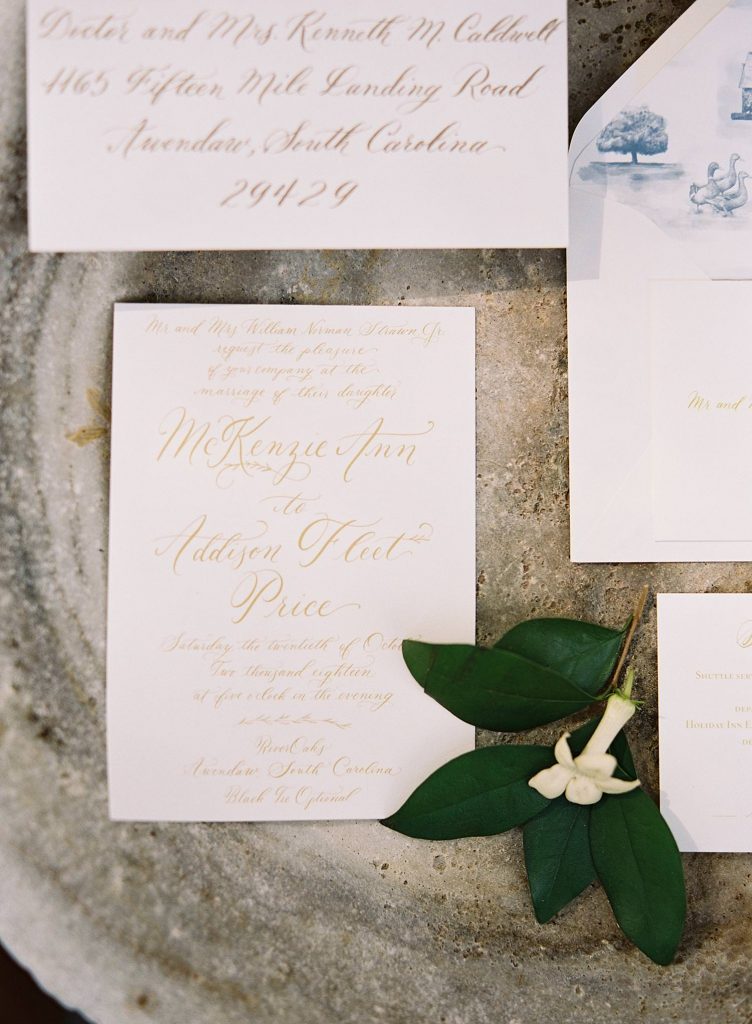 Doctor and Mrs. Kenneth M. Caldwell
1165 Fifteen Mile Landing Road
Awendaw, South Carolina
29429
Mr. and Mrs. William Norman Strawn Jr.
request the pleasure
of your company at the
marriage of their daughter
McKenzie Ann
to
Addison Fleet
Price
Saturday, the twentieth of Octob
Two thousand eighteen
at five o'clock in the evening
RiverOaks
Awendaw, South Carolina
Black Tie Optional
Mr and
Shuttle ser
dep
Holiday Inn E
de